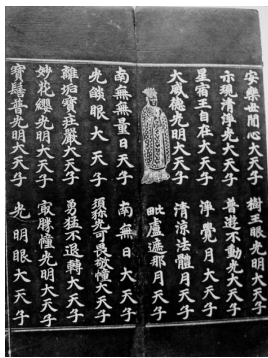 安樂世間心大天子 樹王眼光明大天子
示現清淨光大天子 普遊不動光大天子
星宿王自在大天子 淨覺月天子
大威德光明大天子 清涼法體月天子
毗盧遮那月天子
南無無量日天子 南無日天子
光燄眼大天子 須弥光可畏敬幢大天子
離垢寶莊嚴大天子 勇猛不退轉大天子
妙花纓光明大天子 㝡勝幢光明大天子
寶髻普光明大天子 光明眼大天子